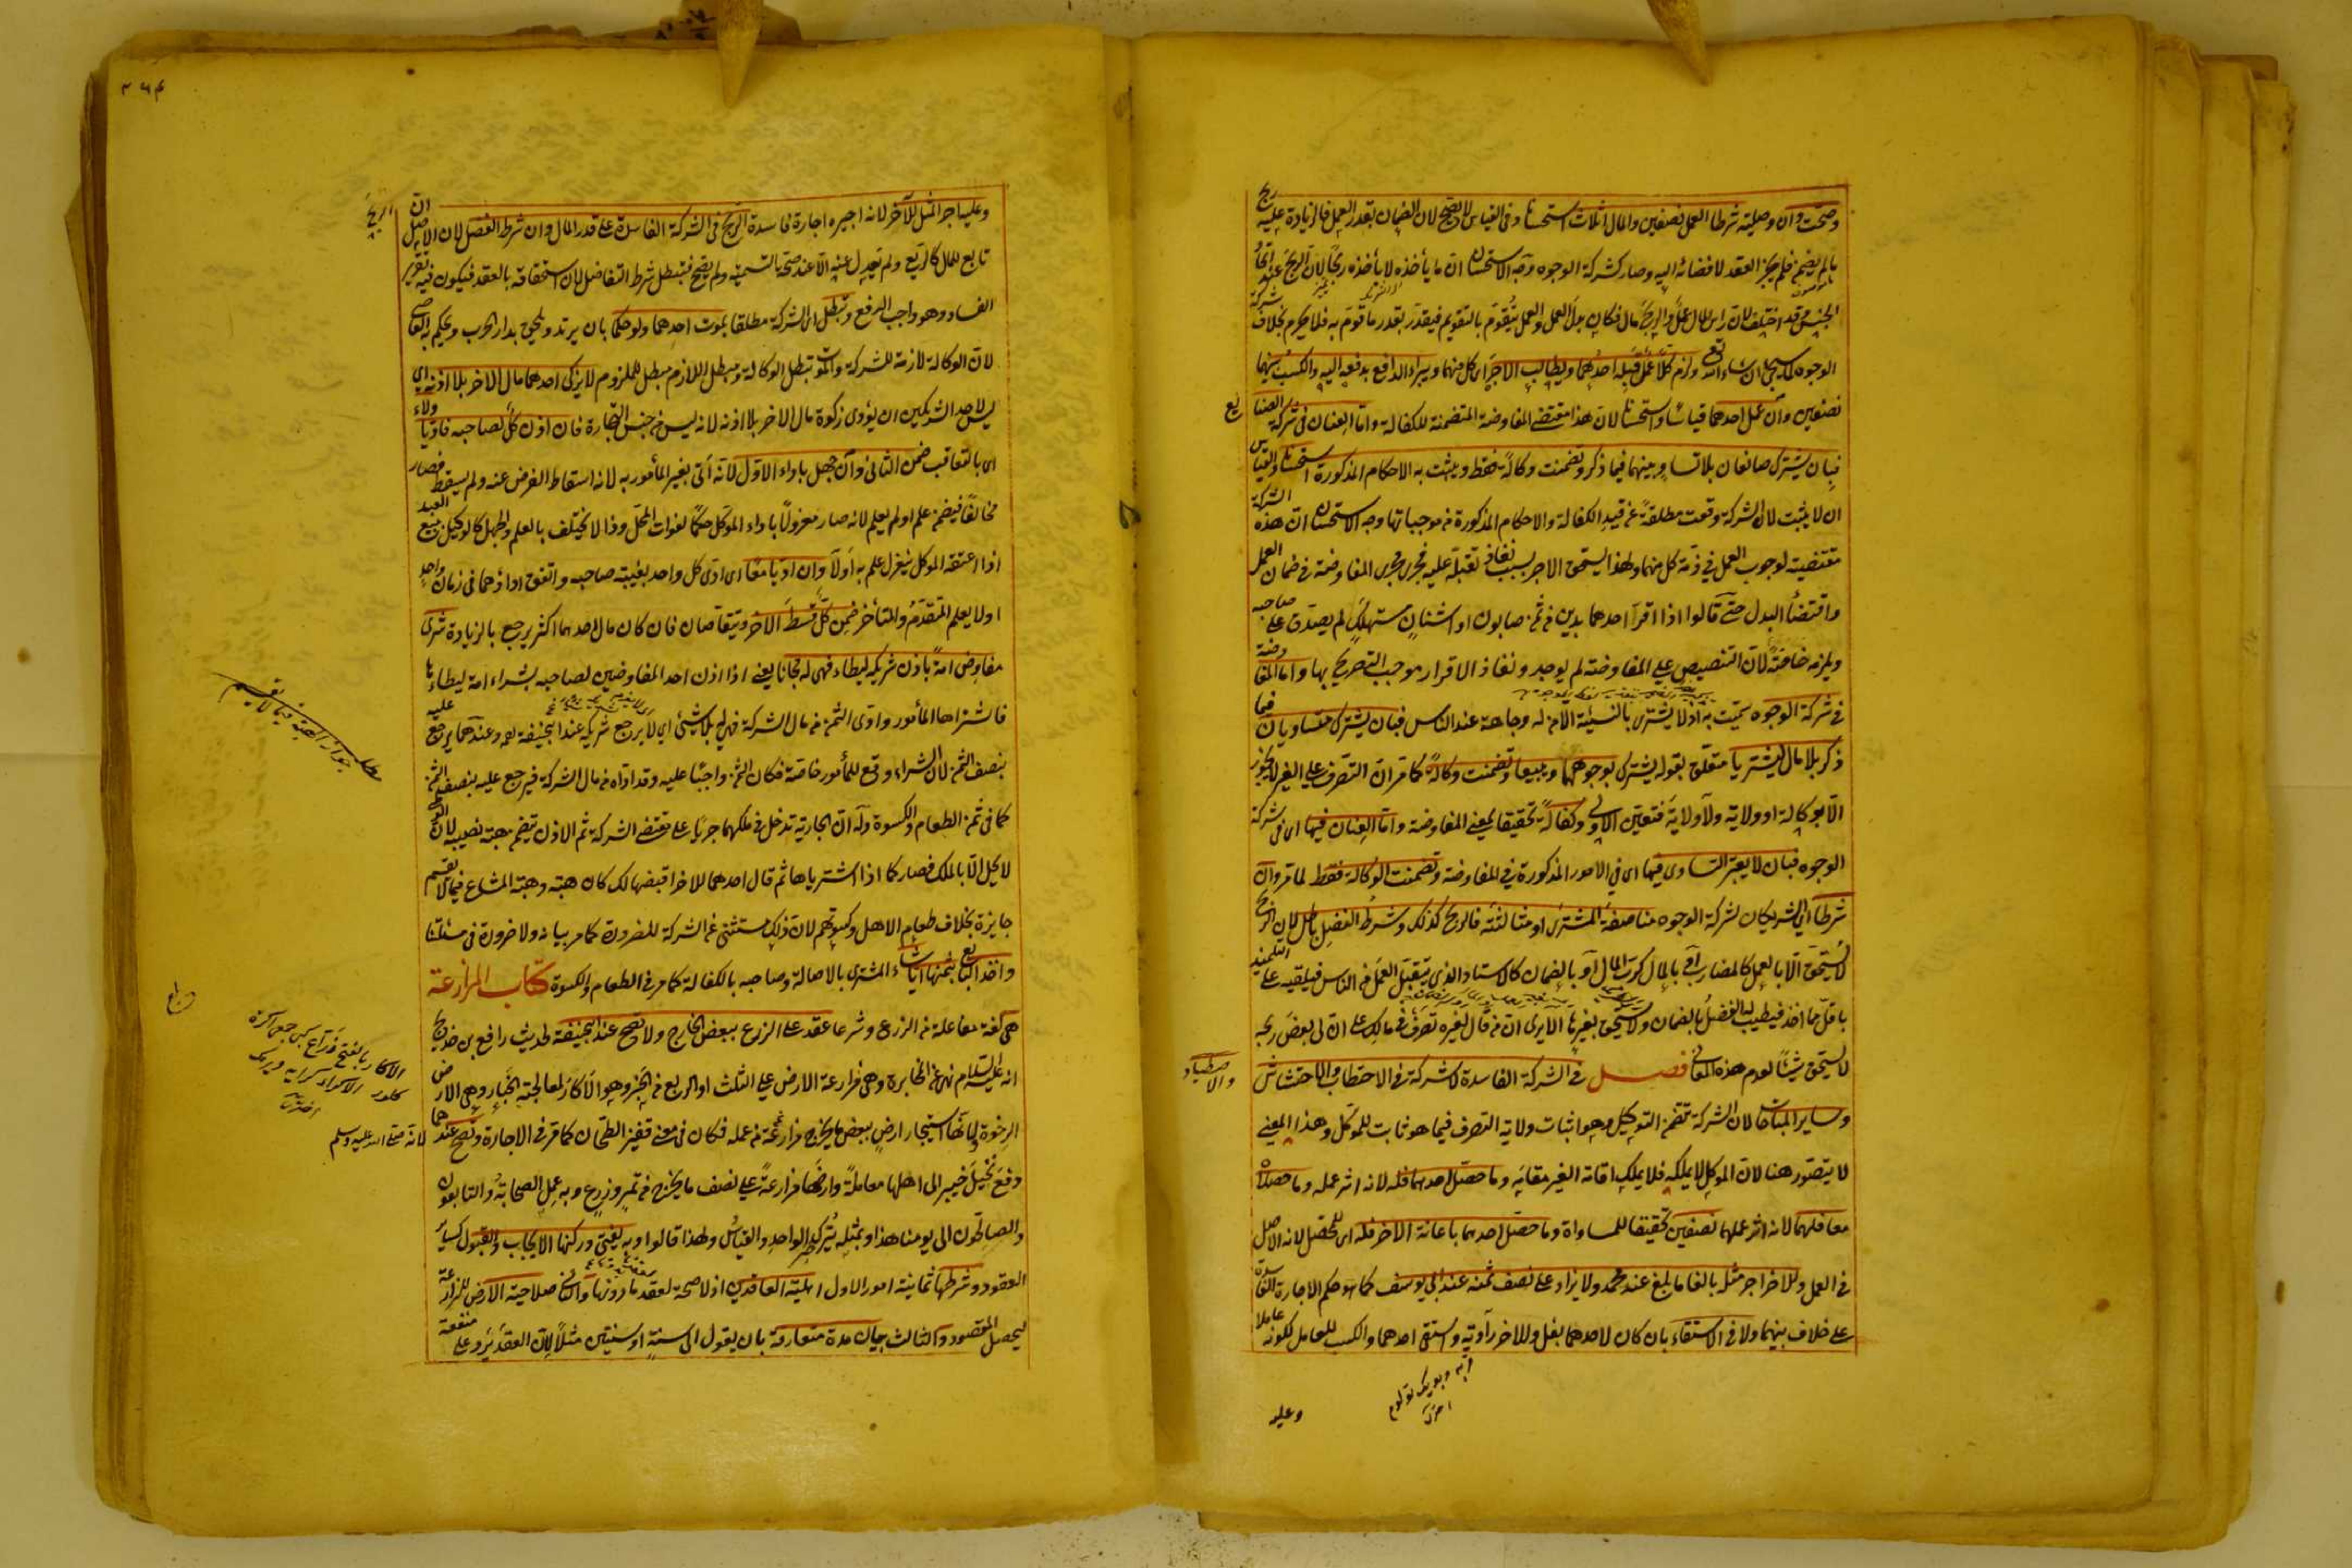 وصحت وان وصلية شرطا العمل نصفين والمال اثلاثا استحسانا وفي القياس لا يصح لان الضمان بقدر العمل فالزيادة عليه ربح
ما لم يضمن فلم يجز العقد لافضائه اليه وصار كشركة الوجوه وجه الاستحسان ان ما يأخذه لا يأخذه ربحا لان الربح عند اتحاد
الجنس وقد اختلف لان رأس المال عمل والربح مال فكان بدل العمل والعمل يتقوم بالتقويم فيقدر بقدر ما قوم به فلا يحرم بخلاف شركة
الوجوه كما سيجئ ان شاء الله تع ولزم كلا عمل قبله احدهما ويطالب الاجر اى كل منهما ويبرأ الدافع بدفعه اليه والكسب بينهما
نصفين وان عمل احدهما قياسا واستحسانا لان هذا مقتضى المفاوضة المتضمنة للكفالة واما العنان في شركة الصنايع
فبان يشترك صانعان بلا تساو بينهما فيما ذكر وتضمنت وكالة فقط ويثبت به الاحكام المذكورة استحسانا والقياس
ان لا يثبت لان الشركة وقعت مطلقة عن قيد الكفالة والاحكام المذكورة من موجباتها وجه الاستحسان ان هذه الشركة
مقتضية لوجوب العمل في ذمة كل منهما ولهذا يستحق الاجر بسبب نفاذ تقبله عليه فجرى مجرى المفاوضة في ضمان العمل
واقتضاء البدل حتى قالوا اذا اقر احدهما بدين من ثمن صابون او اشنان مستهلك لم يصدق على صاحبه
ويلزمه خاصة لان التنصيص على المفاوضة لم يوجد ونفاذ الاقرار موجب التصريح بها واما المفاوضة
في شركة الوجوه سميت به اذ لا يشترى بالنسيئة الا من له وجاهة عند الناس فبان يشترك متساويان فيما
ذكر بلا مال ليشتريا متعلق بقوله يشترك بوجوههما ويبيعا وتضمنت وكالة كما مر ان التصرف على الغير لا يجوز
الا بوكالة او ولاية ولا ولاية فتعين الاولى وكفالة تحقيقا لمعنى المفاوضة واما العنان فيها اى في شركة
الوجوه فبان لا يعتبر التساوى فيها اى في الامور المذكورة في المفاوضة وتضمنت الوكالة فقط لما مر وان
شرطا اى الشريكان لشركة الوجوه مناصفة المشترى او مثالثته فالربح كذلك وشرط الفضل باطل لان الربح
لا يستحق الا بالعمل كالمضارب او بالمال كرب المال او بالضمان كالاستاد الذى يتقبل العمل من الناس فيلقيه على التلميذ
باقل مما اخذ فيطيب له الفضل بالضمان ولا يستحق بغيرها الا يرى ان من قال لغيره تصرف في مالك على ان لى بعض ربحه
لا يستحق شيئا لعدم هذه المعانى فصل في الشركة الفاسدة لا شركة في الاحتطاب والاحتشاش
والاصطياد
وساير المباحات لان الشركة تتضمن التوكيل وهو اثبات ولاية التصرف فيما هو ثابت للموكل وهذا المعنى
لا يتصور هنا لان الموكل لا يملكه فلا يملك اقامة الغير مقامه وما حصل احدهما فله لانه اثر عمله وما حصلاه
معا فلهما لانه اثر عملهما نصفين تحقيقا للمساواة وما حصل احدهما باعانة الاخر فله اى للمحصل لانه الاصل
في العمل وللاخر اجر مثله بالغا ما بلغ عند محمد ولا يزاد على نصف ثمنه عند ابى يوسف كما هو حكم الاجارة الفاسدة
على خلاف بينهما ولا في الاستقاء بان كان لاحدهما بغل وللاخر راوية واستقى احدهما والكسب للعامل لكونه عاملا
وعليه
٣٦٤
وعليه اجر المثل للآخر لانه اجيره اجارة فاسدة الربح في الشركة الفاسدة على قدر المال وان شرط الفضل لان الاصل ان الربح
تابع للمال كالريع ولم يعدل عنه الا عند صحة التسمية ولم يصح فتبطل شرط التفاضل لان استحقاقه بالعقد فيكون فيه تقرير
الفساد وهو واجب الرفع وتبطل اى الشركة مطلقا بموت احدهما ولو حكما بان يرتد ويلحق بدار الحرب ويحكم به القاضى
لان الوكالة لازمة للشركة والموت تبطل الوكالة ومبطل اللازم مبطل للملزوم لا يزكى احدهما مال الاخر بلا اذنه اى
ليس لاحد الشريكين ان يؤدى زكوة مال الاخر بلا اذنه لانه ليس من جنس التجارة فان اذن كل لصاحبه فاديا ولاء
اى بالتعاقب ضمن الثانى وان جهل باداء الاول لانه اتى بغير المأمور به لانه اسقاط الفرض عنه ولم يسقط فصار
مخالفا فيضمن علم او لم يعلم لانه صار معزولا باداء الموكل حكما لفوات المحل وذا لا يختلف بالعلم والجهل كالوكيل ببيع العبد
اذا اعتقه الموكل ينعزل علم به او لا وان اديا معا اى ادى كل واحد بغيبة صاحبه واتفق اداؤهما في زمان واحد
او لا يعلم المتقدم والمتأخر ضمن كل قسط الاخر ويتقاصان فان كان مال احدهما اكثر يرجع بالزيادة شرى
مفاوض امة باذن شريكه ليطاء فهى له مجانا يعنى اذا اذن احد المفاوضين لصاحبه بشراء امة ليطاءها
فاشتراها المأمور وادى الثمن من مال الشركة فهى له بلا شئ اى لا يرجع شريكه عند ابى حنيفة رحمه وعندهما يرجع عليه
بنصف الثمن لان الشراء وقع للمأمور خاصة فكان الثمن واجبا عليه وقد اداه من مال الشركة فيرجع عليه بنصف الثمن
كما في ثمن الطعام والكسوة وله ان الجارية تدخل في ملكهما جريا على مقتضى الشركة ثم الاذن يتضمن هبة نصيبه لان الوطى
لا يحل الا بالملك فصار كما اذا اشترياها ثم قال احدهما للاخر اقبضها لك كان هبة وهبة المشاع فيما لا يقسم
جايزة بخلاف طعام الاهل وكسوتهم لان ذلك مستثنى عن الشركة للضرورة كما مر بيانه ولا ضرورة في مسئلتنا
واخذ البايع بثمنها ايا شاء المشترى بالاصالة وصاحبه بالكفالة كما مر في الطعام والكسوة كتاب المزارعة
هى لغة مفاعلة من الزرع وشرعا عقد على الزرع ببعض الخارج ولا تصح عند ابى حنيفة لحديث رافع بن خديج
انه عليه السلام نهى عن المخابرة وهى مزارعة الارض على الثلث او الربع من الخبر وهو الاكار لمعالجته الخبار وهى الارض
الرخوة ولانها استيجار ارض ببعض ما يخرج من عمله فكان في معنى قفيز الطحان كما مر في الاجارة وتصح عندهما
لانه صلى الله عليه وسلم
دفع نخيل خيبر الى اهلها معاملة وارضها مزارعة على نصف ما يخرج من ثمر وزرع وبه عمل الصحابة والتابعون
والصالحون الى يومنا هذا وبمثله يترك خبر الواحد والقياس ولهذا قالوا وبه يفتى وركنها الايجاب والقبول كساير
العقود وشرطها ثمانية امور الاول اهلية العاقدين اذ لا صحة لعقد ما دونها والثانى صلاحية الارض للزراعة
ليحصل المقصود والثالث بيان مدة متعارفة بان يقول الى سنة او سنتين مثلا لان العقد يرد على منفعة
مطلب جواز الهبة فيما لا يقسم